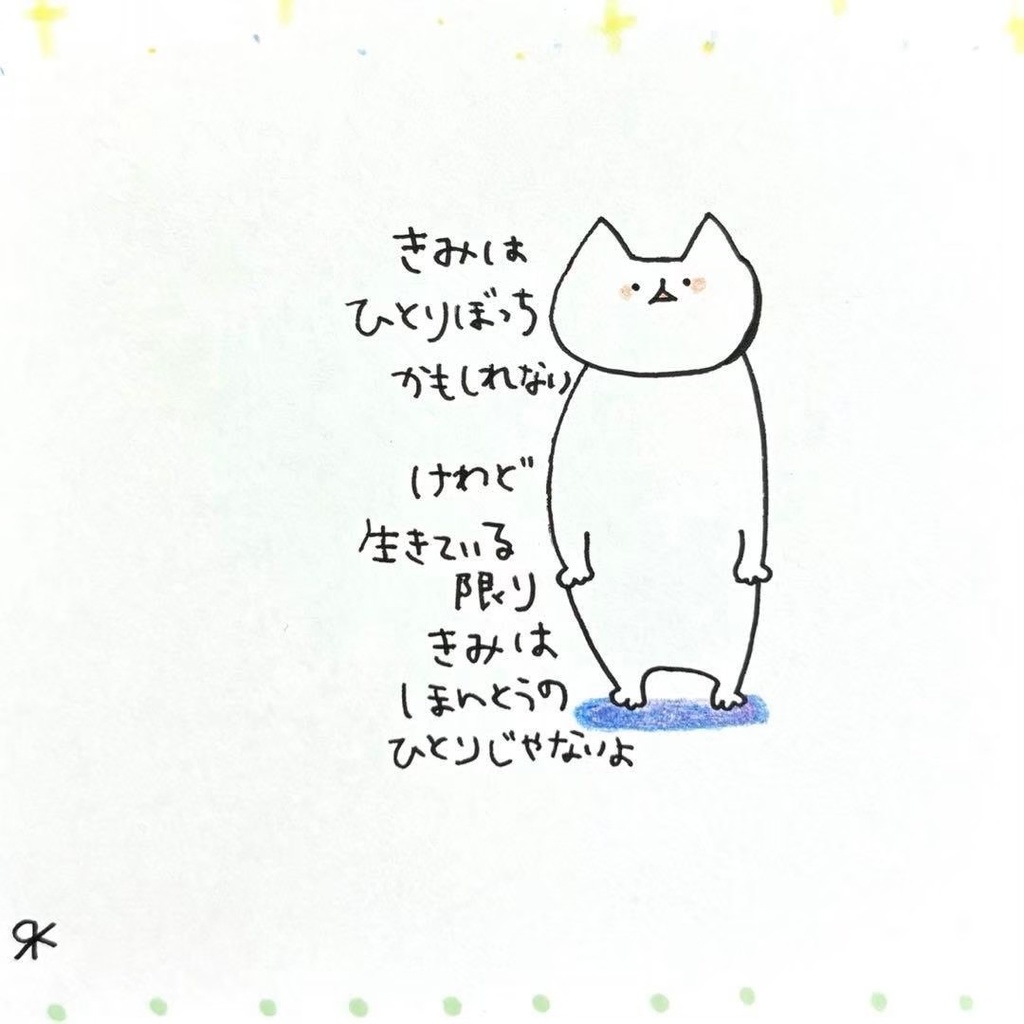 きみは
ひとりぼっち
かもしれない
けれど
生きている
限り
きみは
ほんとうの
ひとりじゃないよ